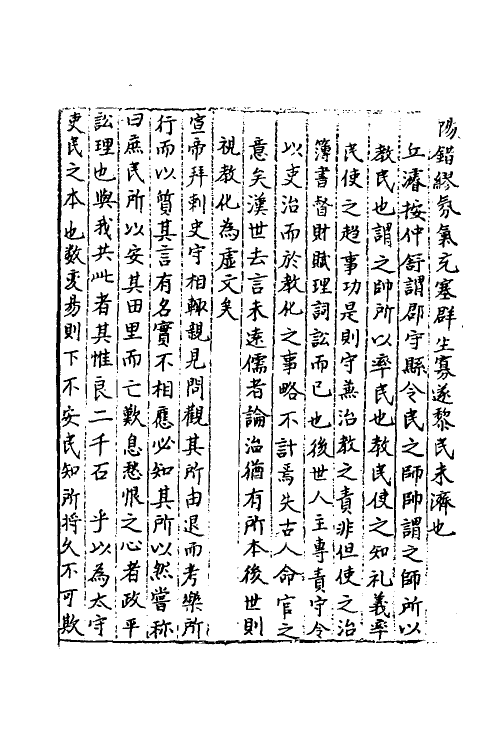 陽錯繆氛氣充塞群生寡遂黎民未濟也
丘濬按仲舒謂郡守縣令民之師帥謂之師所以
教民也謂之帥所以率民也教民使之知礼義率
民使之趨事功是則守兼治教之責非但使之治
簿書督財賦理詞訟而已也後世人主專責守令
以吏治而於教化之事略不計焉失古人命官之
意矣漢世去古未遠儒者論治猶有所本後世則
視教化為虛文矣
宣帝拜刺史守相輒親見問觀其所由退而考察所
行而以質其言有名實不相應必知其所以然嘗称
曰庶民所以安其田里而亡歎息愁恨之心者政平
訟理也與我共此者其惟良二千石乎以為太守
吏民之本也數変易則下不安民知所將久不可欺